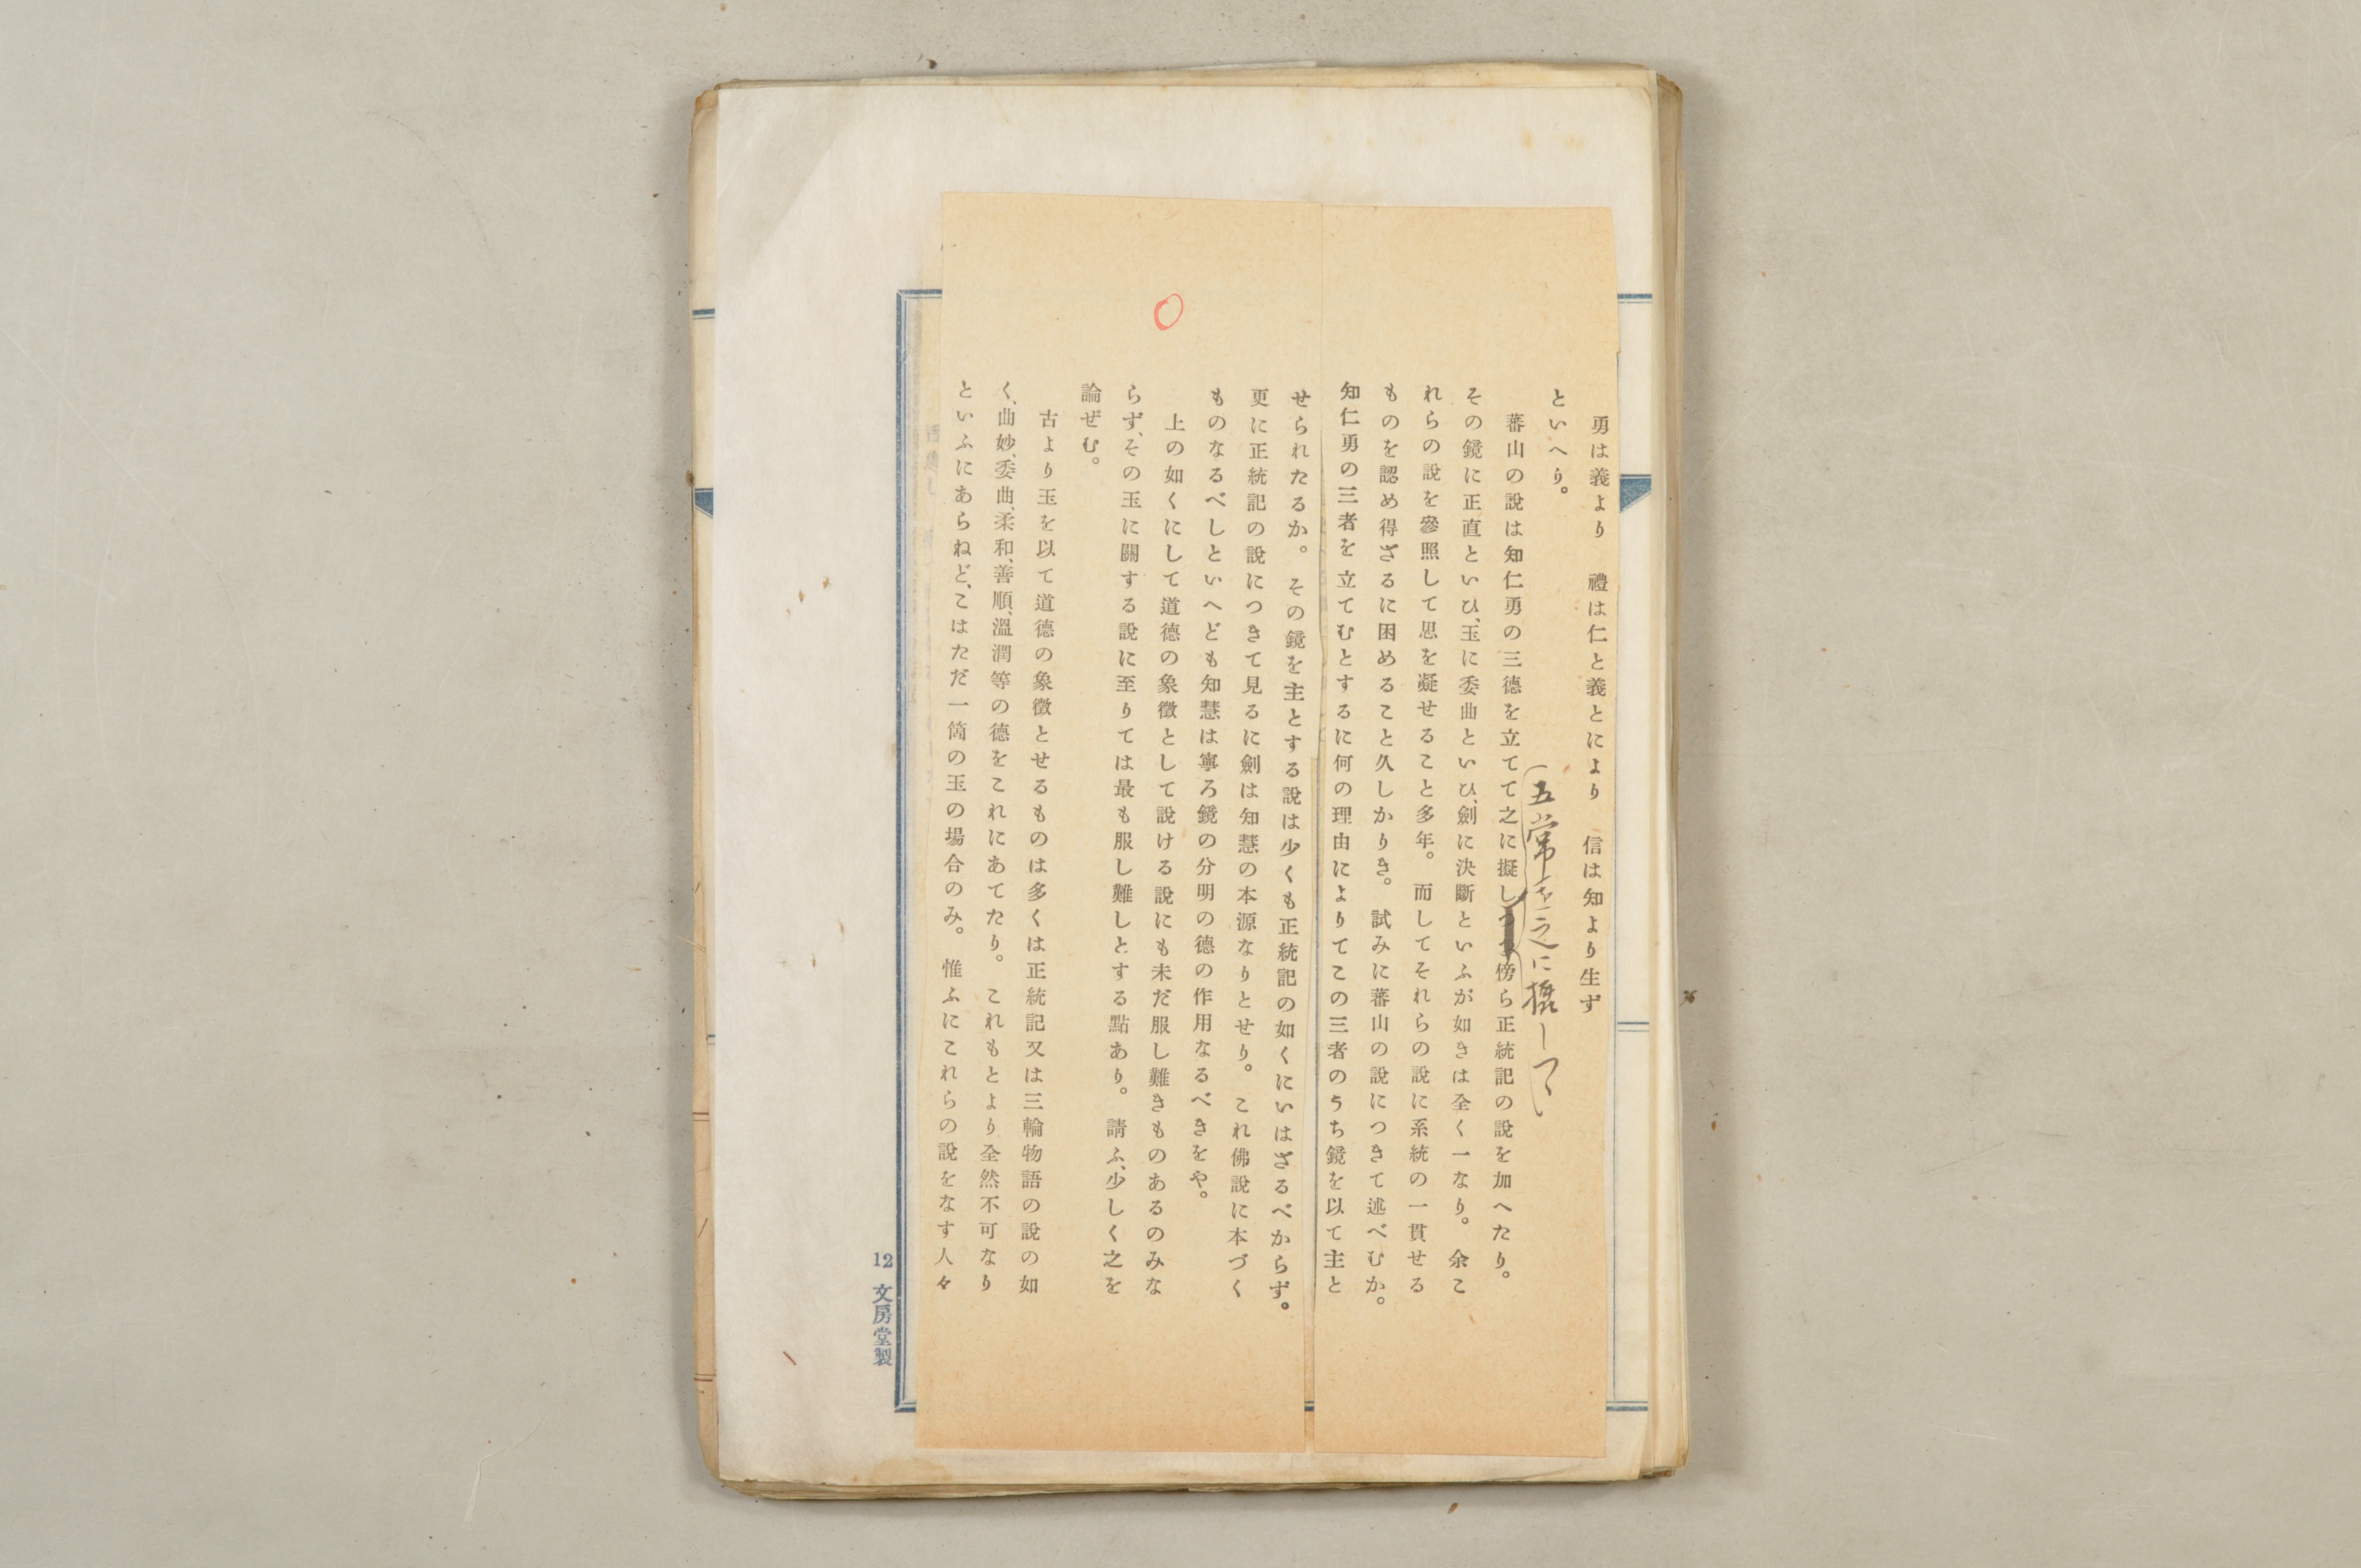 勇は義より　禮は仁と義とにより　信は知より生ず
といへり。
五常を之に擬しつゝ
蕃山の說は知仁勇の三德を立てて之に擬しつつ傍ら正統記の說を加へたり。
その鏡に正直といひ、玉に委曲といひ、劍に決斷といふが如きは全く一なり。余こ
れらの說を參照して思を凝せること多年。而してそれらの說に系統の一貫せる
ものを認め得ざるに困めること久しかりき。試みに蕃山の說につきて述べむか。
知仁勇の三者を立てむとするに何の理由によりてこの三者のうち鏡を以て主と
せられたるか。その鏡を主とする說は少くも正統記の如くにいはざるべからず。
更に正統記の說につきて見るに劍は知慧の本源なりとせり。これ佛說に本づく
ものなるべしといへども知慧は寧ろ鏡の分明の德の作用なるべきをや。
上の如くにして道德の象徵として說ける說にも未だ服し難きものあるのみな
らず、その玉に關する說に至りては最も服し難しとする點あり。請ふ、少しく之を
論ぜむ。
古より玉を以て道德の象徵とせるものは多くは正統記又は三輪物語の說の如
く、曲妙、委曲、柔和、善順、溫潤等の德をこれにあてたり。これもとより全然不可なり
といふにあらねど、こはただ一箇の玉の場合のみ。惟ふにこれらの說をなす人々
12 文房堂製